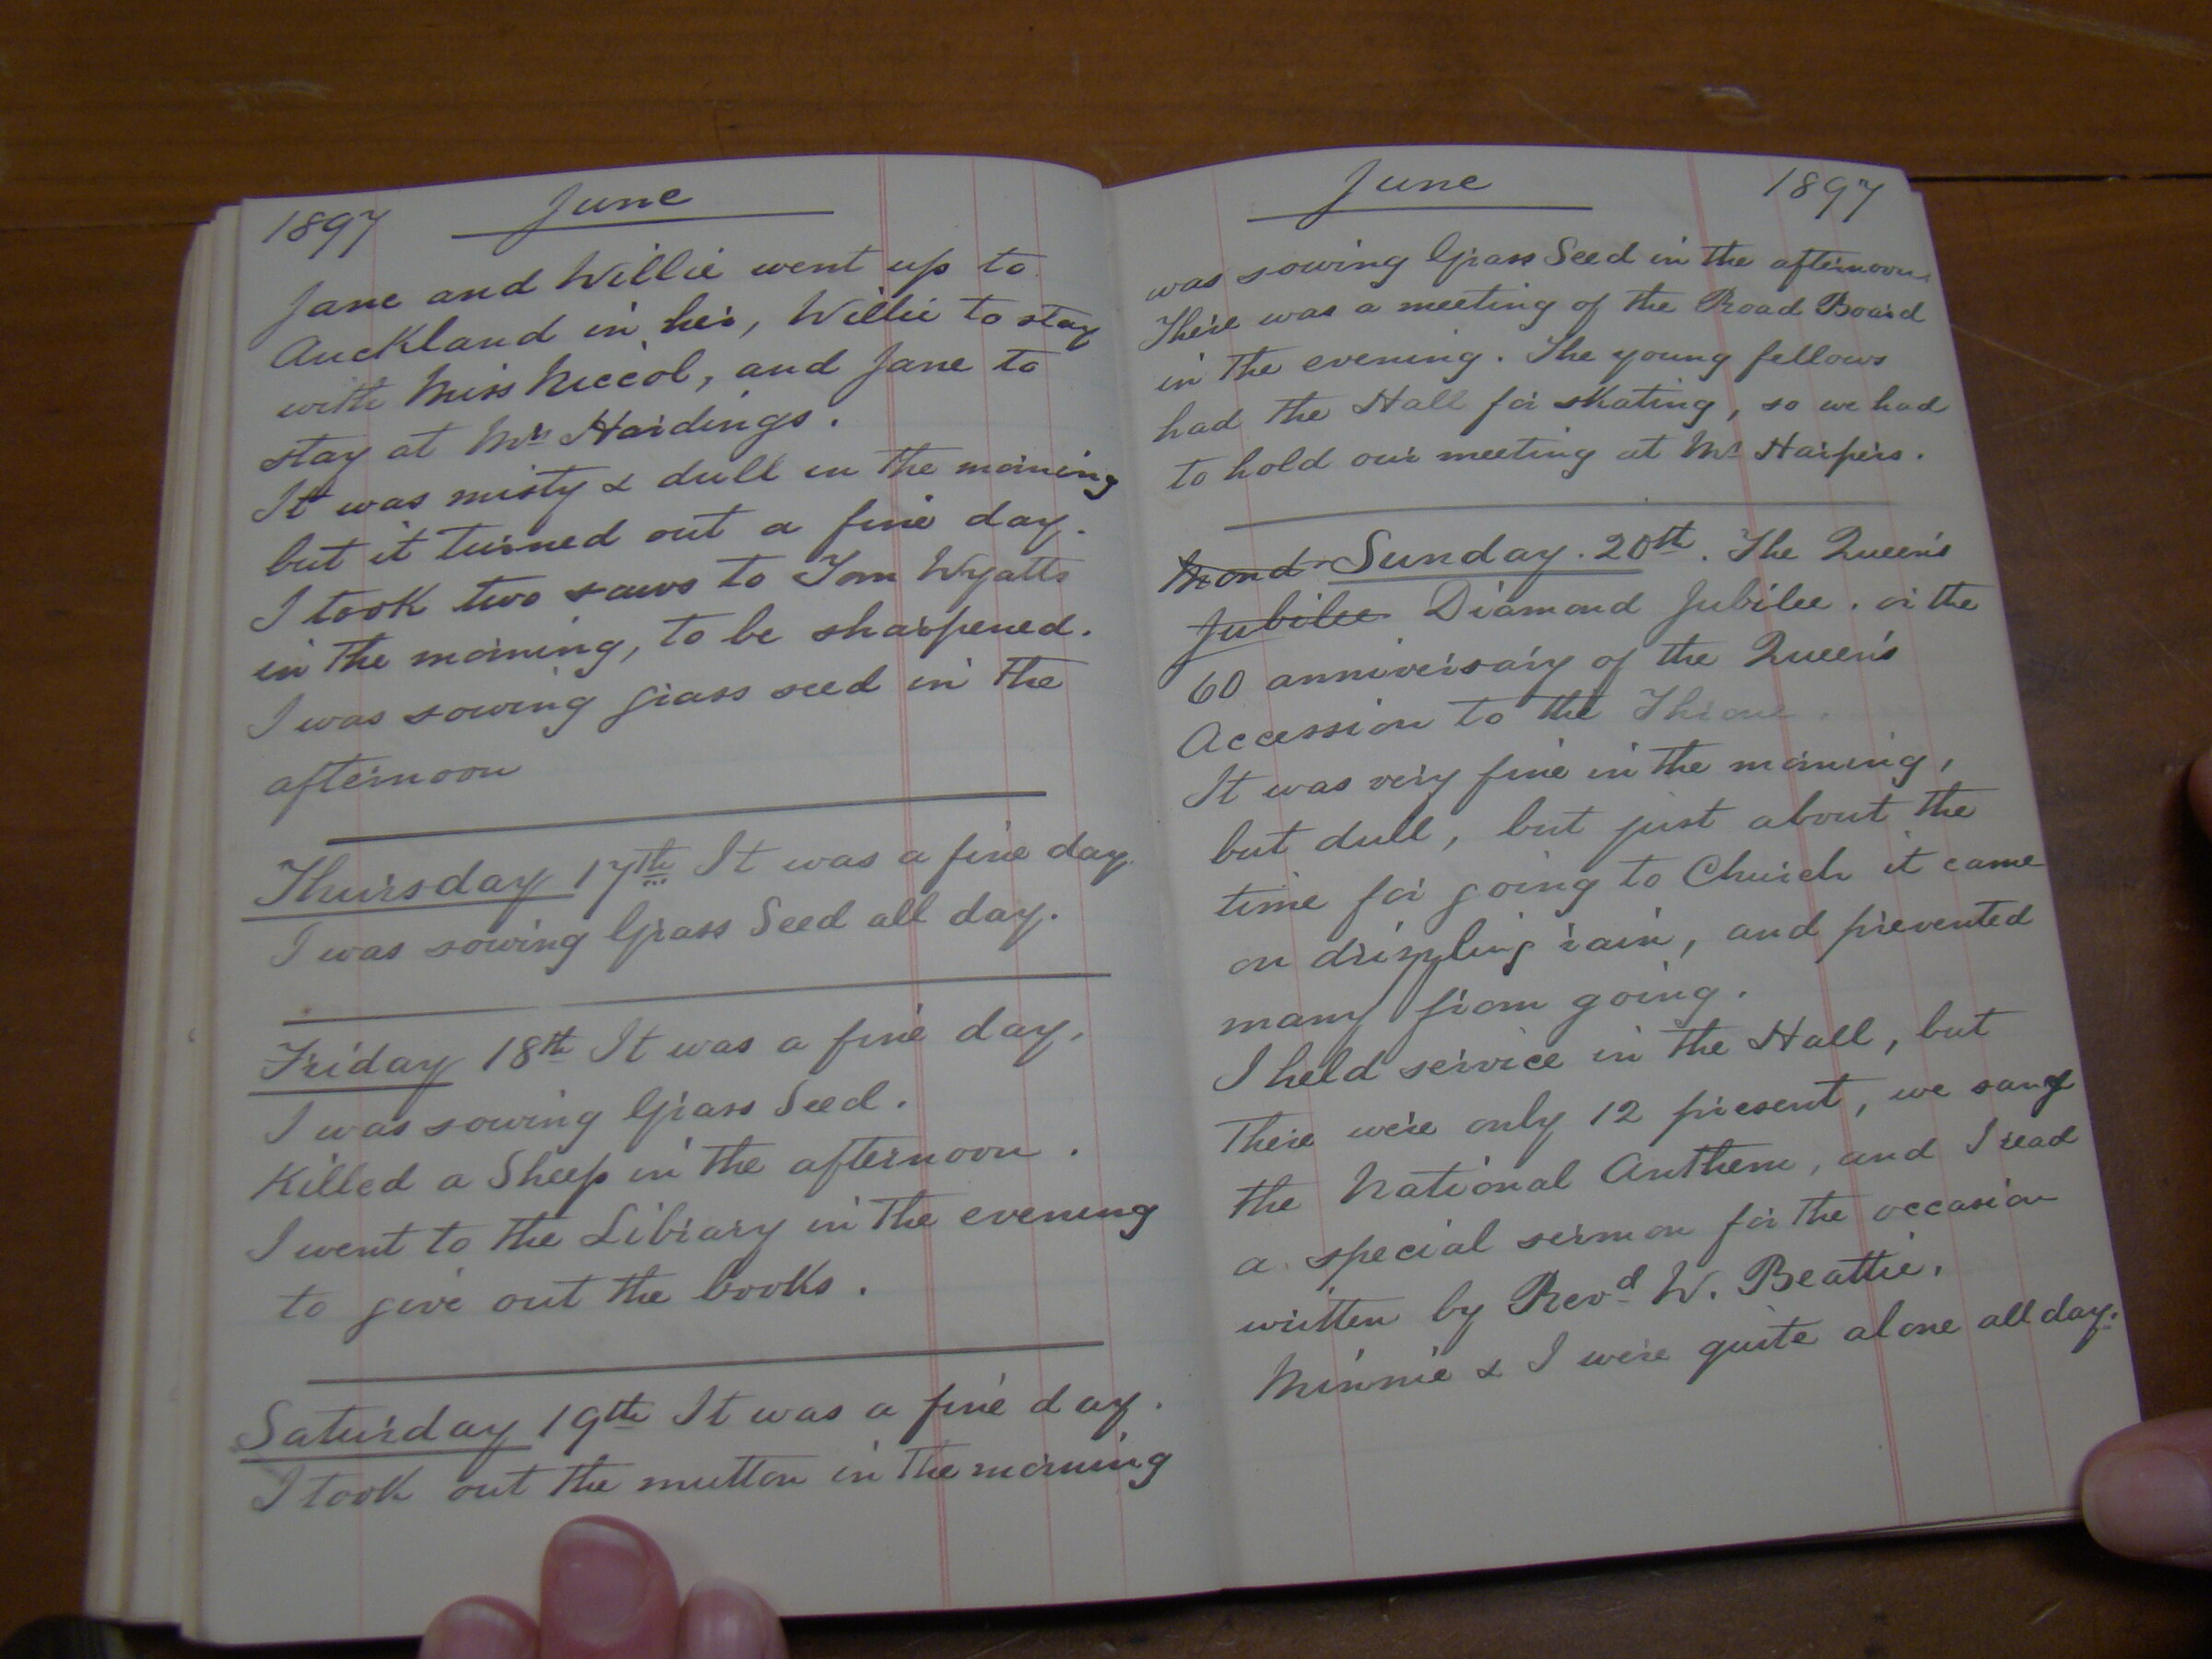 1897 June
Jane and Willie went up to
Auckland in her, Willie to stay
with Miss Niccol, and Jane to
stay at Mrs Hardings.
It was misty & dull in the morning
but it turned out a fine day.
I took two saws to Tom Wyatts
in the morning, to be sharpened.
I was sowing grass seed in the
afternoon
Thursday 17th It was a fine day.
I was sowing Grass Seed all day.
Friday 18th It was a fine day,
I was sowing Grass Seed.
Killed a Sheep in the afternoon.
I went to the Library in the evening
to give out the books.
Saturday 19th It was a fine day.
I took out the mutton in the morning
June 1897
was sowing Grass Seed in the afternoon.
There was a meeting of the Road Board
in the evening. The young fellows
had the Hall for skating, so we had
to hold our meeting at Mr Harpers.
Mond Sunday. 20th. The Queen's
Jubilee Diamond Jubilee. or the
60 anniversary of the Queen's
Accession to the Throne.
It was very fine in the morning,
but dull, but just about the
time for going to Church it came
on drizzling rain, and prevented
many from going.
I held service in the Hall, but
There were only 12 present, we sang
the National Anthem, and I read
a special sermon for the occasion
written by Revd W. Beattie.
Minnie & I were quite alone all day.